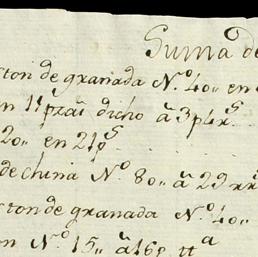 Suma de
ton de granada N.º 40,, en
n 11 pzas dicho â 3 p 4 rs
20,, en 21 ps
de china Nº 80,, â 29 rr
ton de granada Nº 40,,
on N.º 15,, â 16 p tta